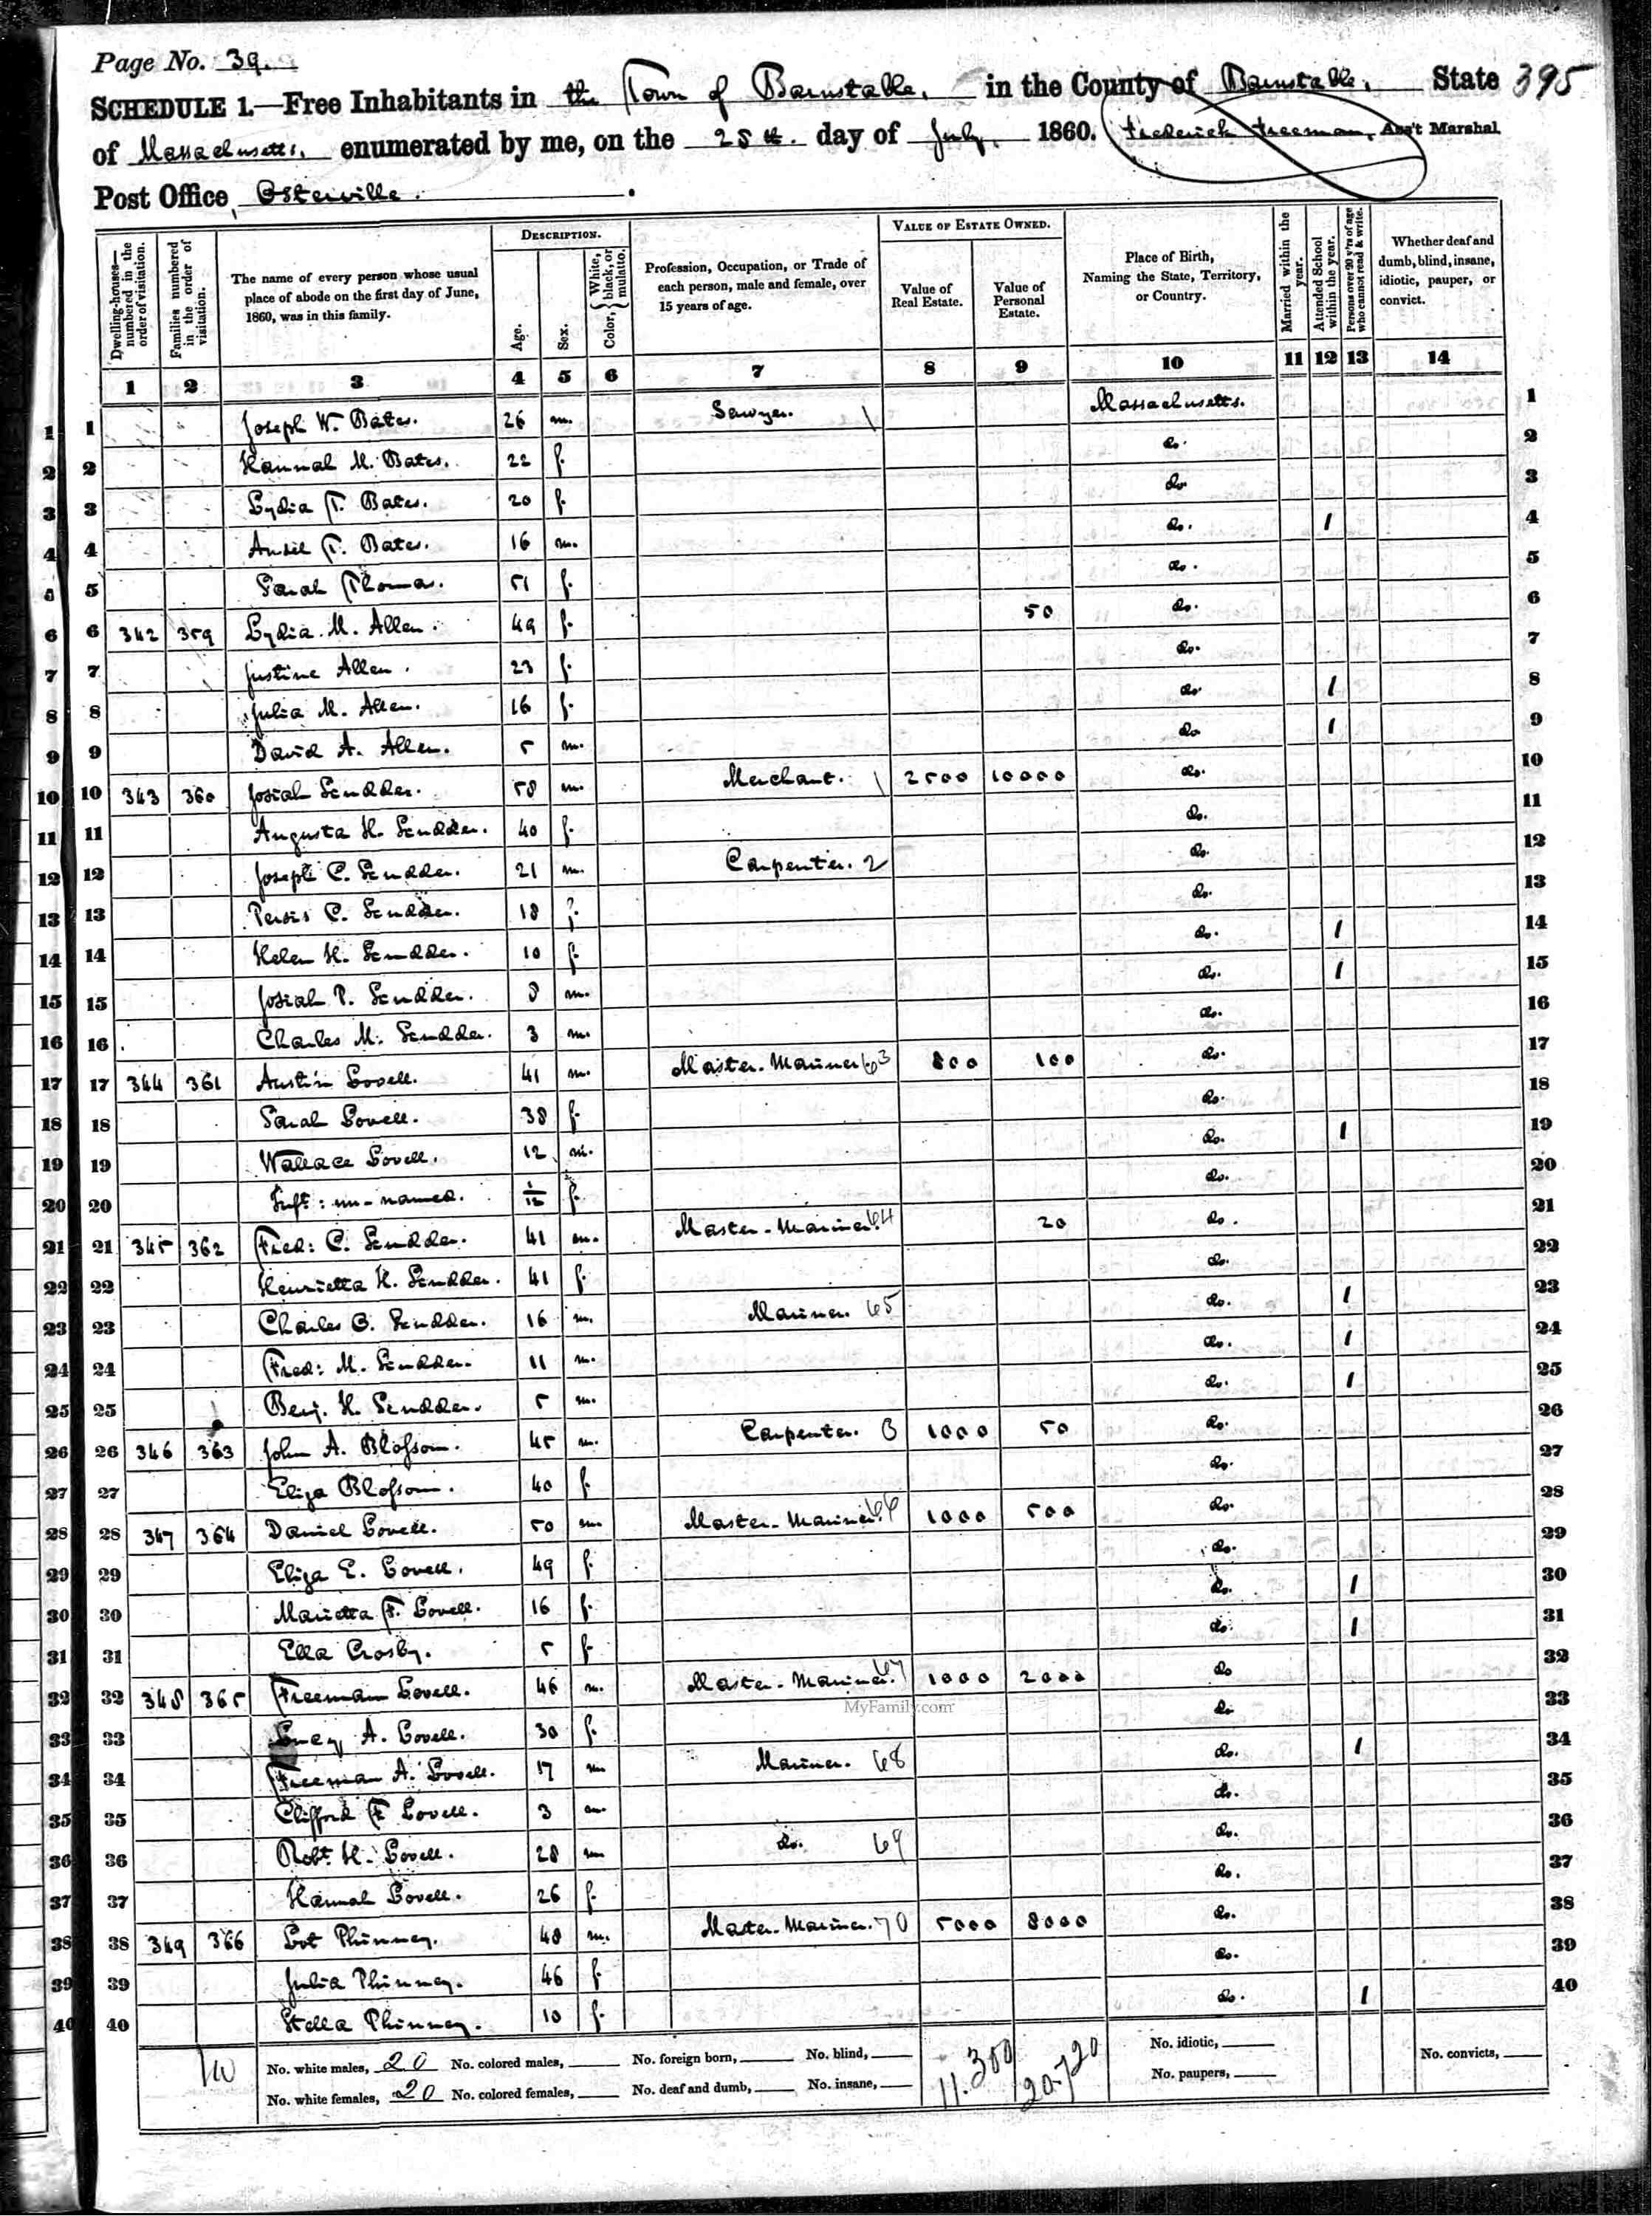 Page No. 39.
SCHEDULE 1.—Free Inhabitants in the Town of Barnstable, in the County of Barnstable, State 395
of Massachusetts, enumerated by me, on the 25th. day of July, 1860. Frederick Freeman, Ass't Marshal.
Post Office, Osterville.
Dwelling-houses—numbered in the order of visitation.
Families numbered in the order of visitation.
The name of every person whose usual place of abode on the first day of June, 1860, was in this family.
DESCRIPTION.
Age.
Sex.
Color, { White, black, or mulatto.
Profession, Occupation, or Trade of each person, male and female, over 15 years of age.
VALUE OF ESTATE OWNED.
Value of Real Estate.
Value of Personal Estate.
Place of Birth, Naming the State, Territory, or Country.
Married within the year.
Attended School within the year.
Persons over 20 y'rs of age who cannot read & write.
Whether deaf and dumb, blind, insane, idiotic, pauper, or convict.
1 2 3 4 5 6 7 8 9 10 11 12 13 14
1 1 Joseph W. Bates. 26 m. Sawyer. \ Massachusetts. 1
2 2 Hannah M. Bates. 22 f. do. 2
3 3 Lydia T. Bates. 20 f. do. 3
4 4 Ansel T. Bates. 16 m. do. 1 4
5 5 Sarah Thomas. 51 f. do. 5
6 6 342 359 Lydia M. Allen. 49 f. 50 do. 6
7 7 Justine Allen. 23 f. do. 7
8 8 Julia M. Allen. 16 f. do. 1 8
9 9 David A. Allen. 5 m. do 1 9
10 10 343 360 Josiah Scudder. 58 m. Merchant. \ 2500 10000 do. 10
11 11 Augusta H. Scudder. 40 f. do. 11
12 12 Joseph C. Scudder. 21 m. Carpenter. 2 do. 12
13 13 Persis C. Scudder. 18 f. do. 13
14 14 Helen H. Scudder. 10 f. do. 1 14
15 15 Josiah P. Scudder. 8 m. do. 1 15
16 16 Charles M. Scudder. 3 m. do. 16
17 17 344 361 Austin Lovell. 41 m. Master-Mariner 63 800 100 do. 17
18 18 Sarah Lovell. 38 f. do. 18
19 19 Wallace Lovell. 12 m. do. 1 19
20 20 Inft: un-named. 1/12 f. do. 20
21 21 345 362 Fred: C. Scudder. 41 m. Master-Mariner. 64 20 do. 21
22 22 Henrietta H. Scudder. 41 f. do. 22
23 23 Charles B. Scudder. 16 m. Mariner. 65 do. 1 23
24 24 Fred: M. Scudder. 11 m. do. 1 24
25 25 Benj. H. Scudder. 5 m. do. 1 25
26 26 346 363 John A. Blossom. 45 m. Carpenter. 3 1000 50 do. 26
27 27 Eliza Blossom. 40 f. do. 27
28 28 347 364 Daniel Lovell. 50 m. Master-Mariner. 66 1000 500 do. 28
29 29 Eliza E. Lovell. 49 f. do. 29
30 30 Marietta F. Lovell. 16 f. do. 1 30
31 31 Ella Crosby. 5 f. do. 1 31
32 32 348 365 Freeman Lovell. 46 m. Master-Mariner. 67 1000 2000 do 32
MyFamily.com
33 33 Lucy A. Lovell. 30 f. do 33
34 34 Freeman A. Lovell. 17 m Mariner. 68 do. 1 34
35 35 Clifford F. Lovell. 3 m. do. 35
36 36 Robt. H. Lovell. 28 m do. 69 do. 36
37 37 Hannah Lovell. 26 f. do. 37
38 38 349 366 Lot Phinney. 48 m. Master-Mariner. 70 5000 8000 do. 38
39 39 Julia Phinney. 46 f. do. 39
40 40 Stella Phinney. 10 f. do. 1 40
No. white males, 20 No. colored males, No. foreign born, No. blind, 11.300 20.720 No. idiotic, No. convicts,
No. white females, 20 No. colored females, No. deaf and dumb, No. insane, No. paupers,